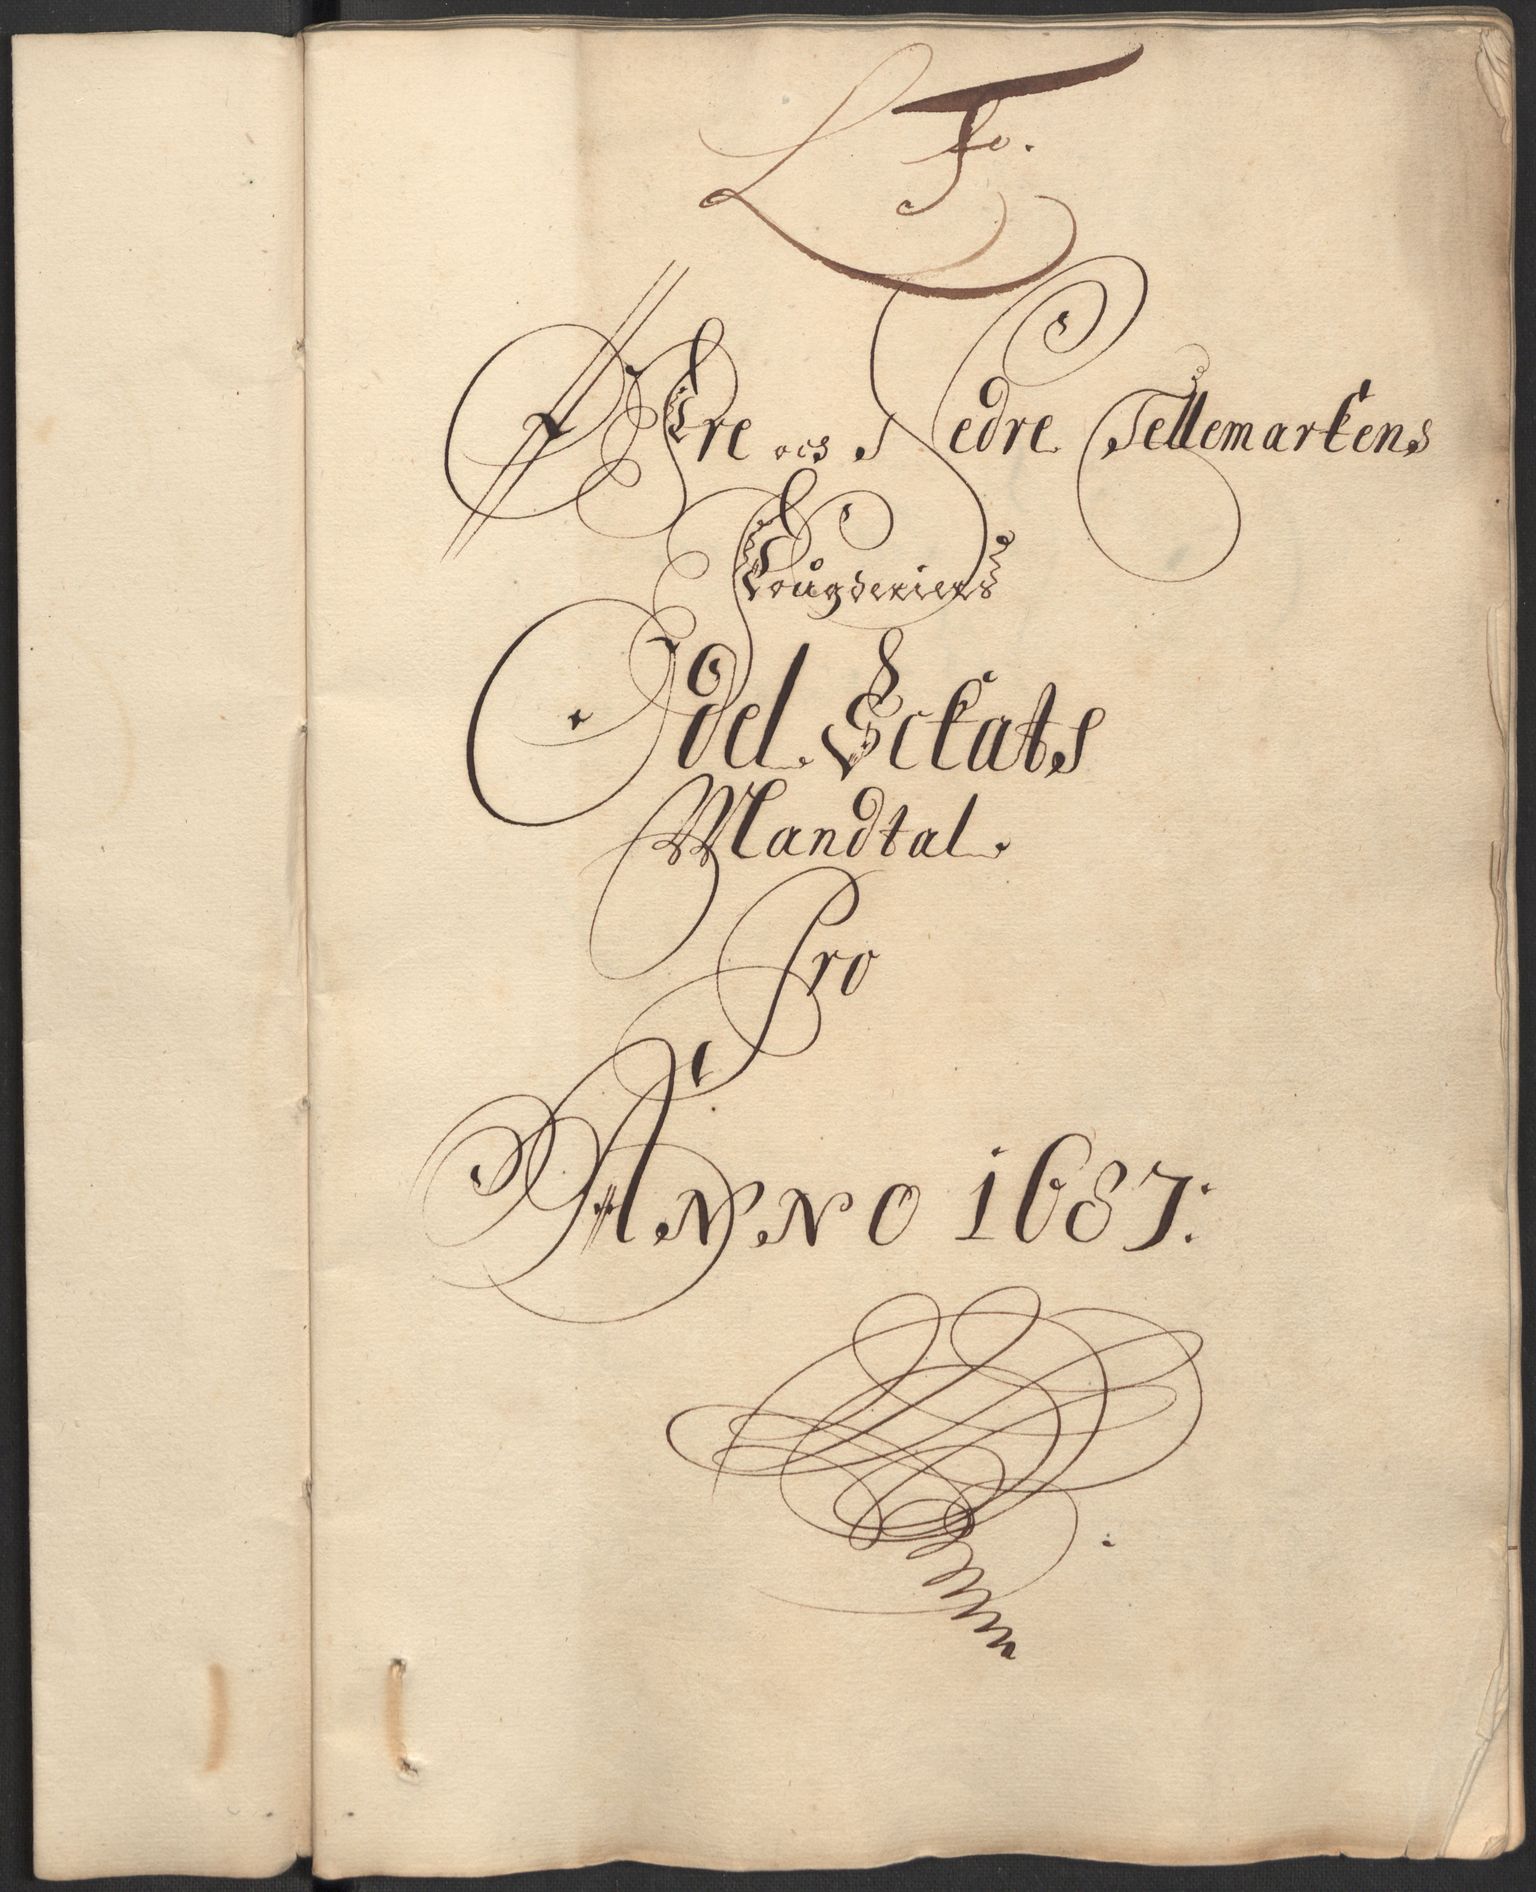 Øfre och Nedre Tellemarkens
Fougderiers
Odel Sckats
Mandtal.
Pro
ANNO 1687: